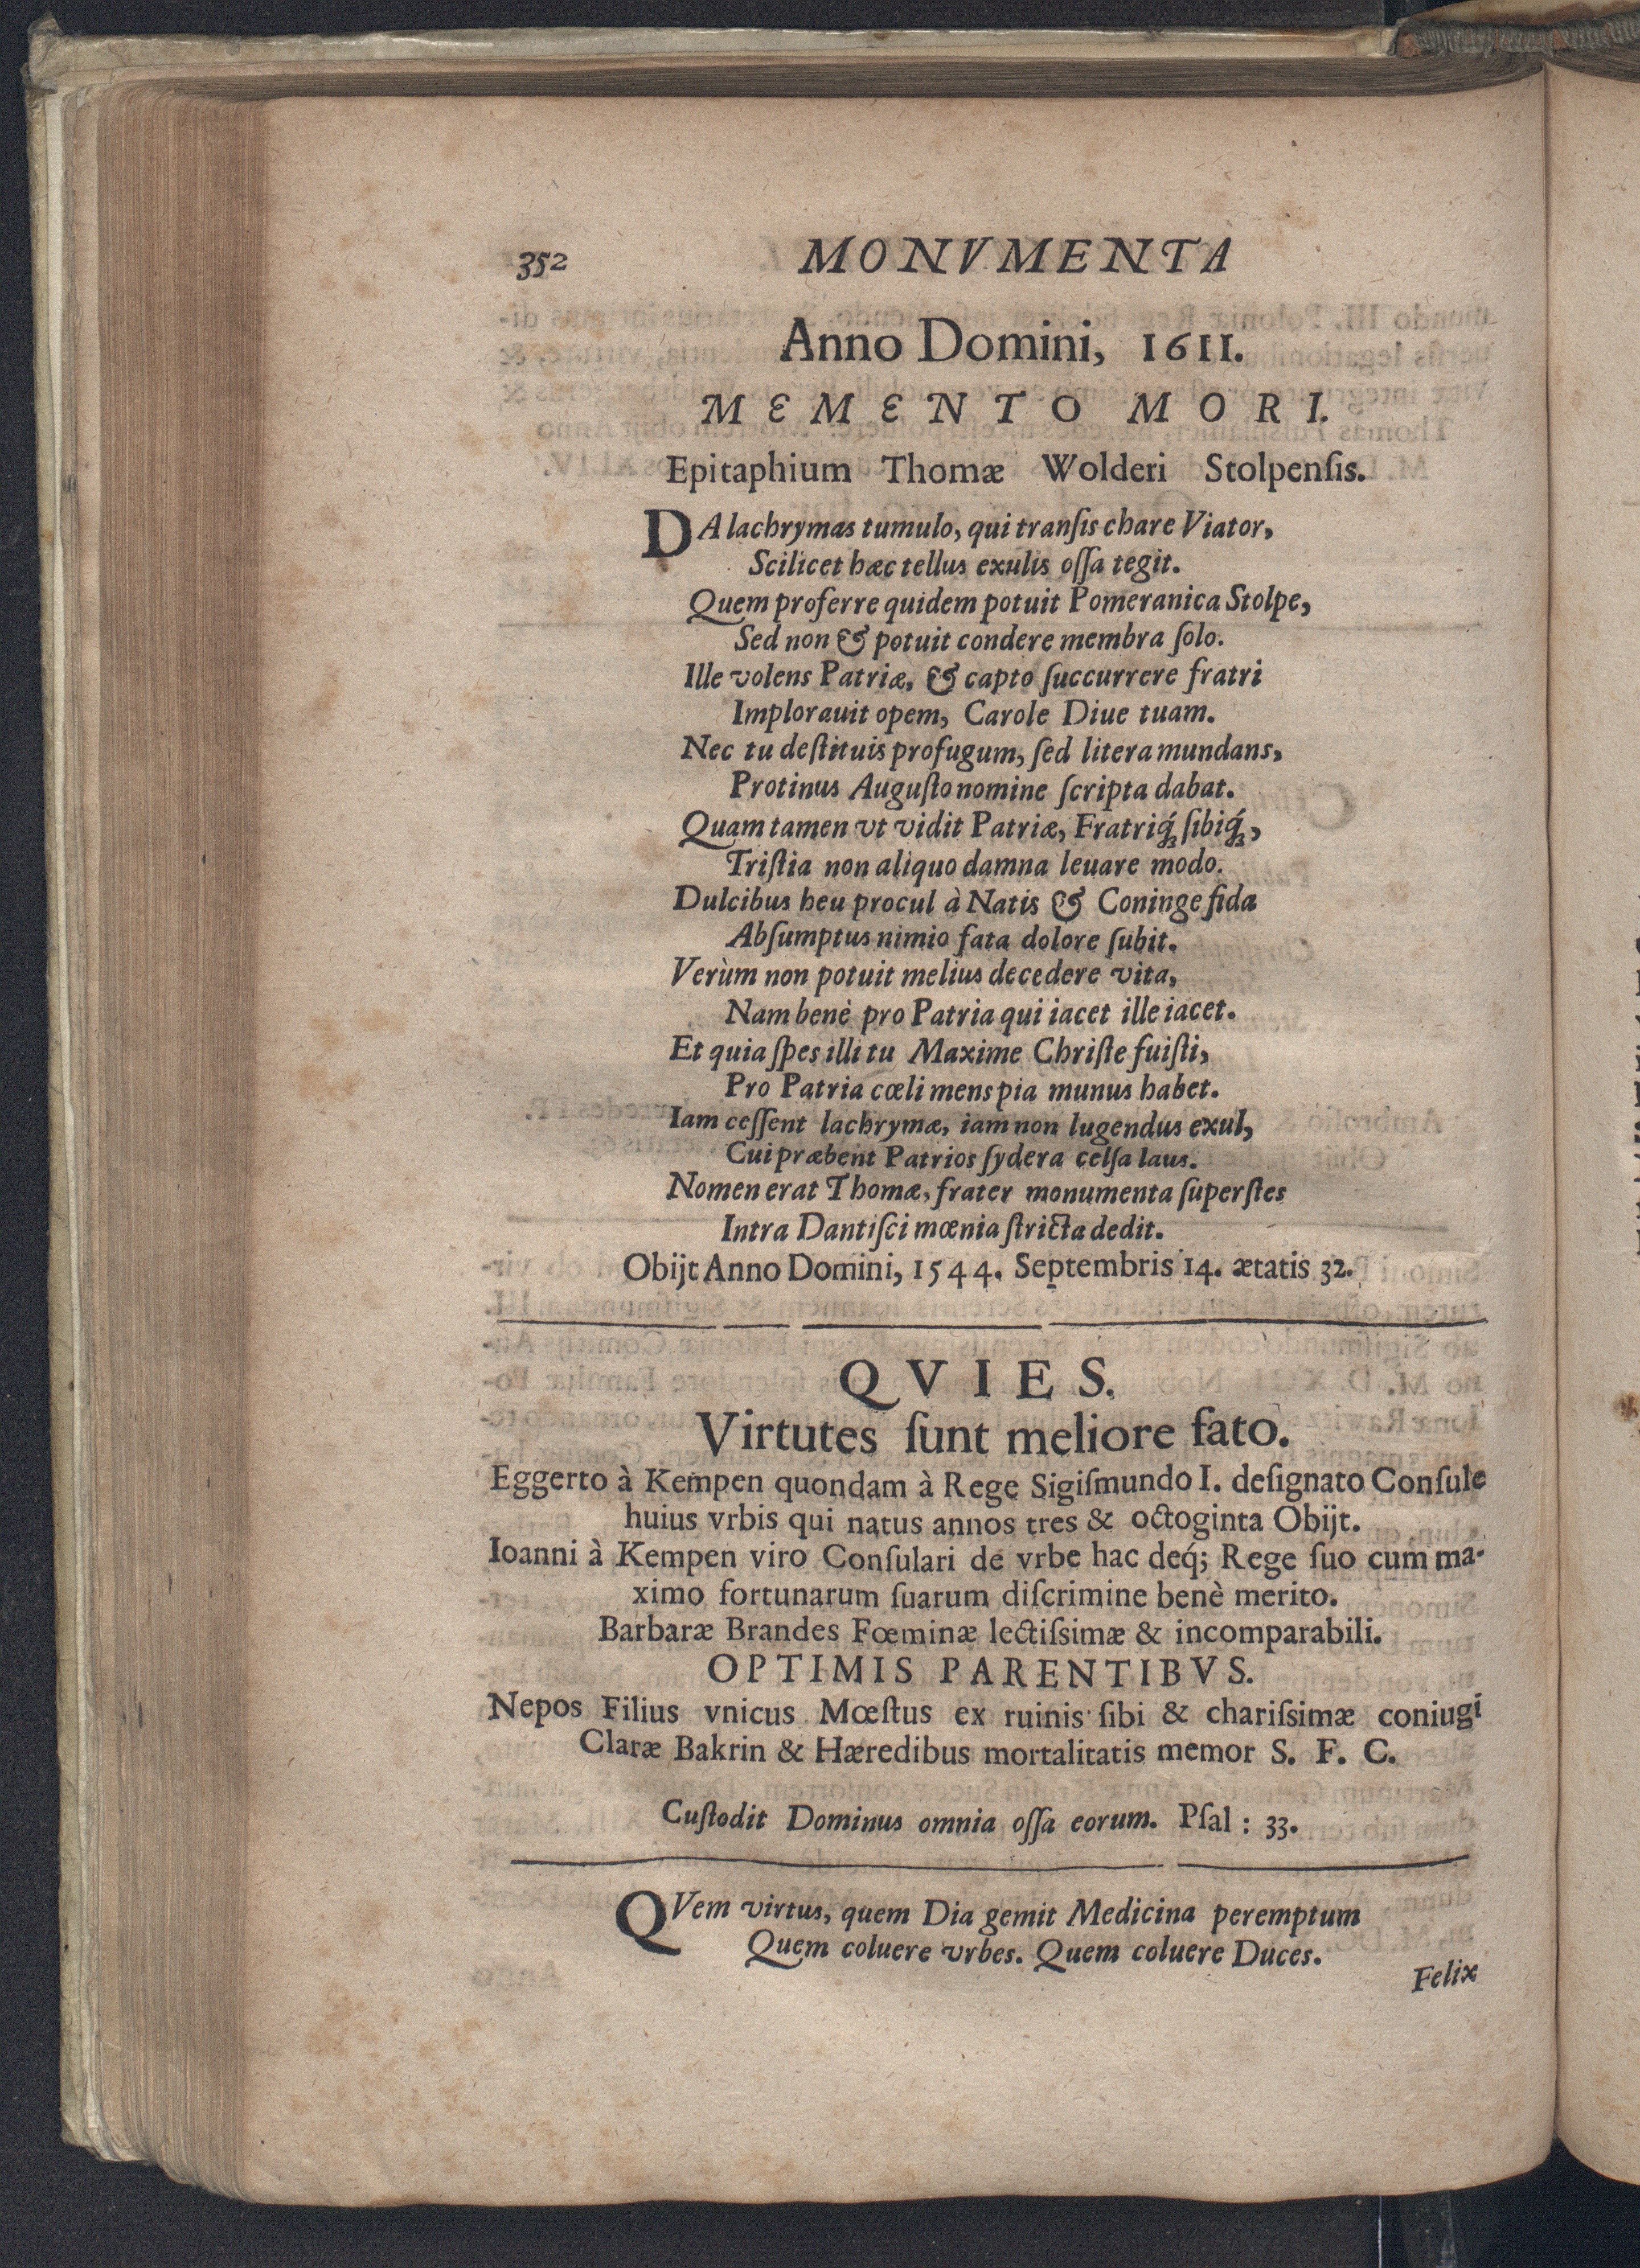 352 MONVMENTA
Anno Domini, 1611.
MEMENTO MORI.
Epitaphium Thomæ Wolderi Stolpenſis.
DA lachrymas tumulo, qui tranſis chare Viator,
Scilicet hæc tellus exulis oſſa tegit.
Quem proferre quidem potuit Pomeranica Stolpe,
Sed non & potuit condere membra ſolo.
Ille volens Patriæ, & capto ſuccurrere fratri
Implorauit opem, Carole Diue tuam.
Nec tu deſtituis profugum, ſed litera mundans,
Protinus Auguſto nomine ſcripta dabat.
Quam tamen vt vidit Patriæ, Fratriq́ꝫ ſibiq́ꝫ,
Triſtia non aliquo damna leuare modo.
Dulcibus heu procul à Natis & Coninge fida
Abſumptus nimio fata dolore ſubit.
Verùm non potuit melius decedere vita,
Nam benè pro Patria qui iacet ille iacet.
Et quia ſpes illi tu Maxime Chriſte fuiſti,
Pro Patria cœli mens pia munus habet.
Iam ceſſent lachrymæ, iam non lugendus exul,
Cui præbent Patrios ſydera celſa laus.
Nomen erat Thomæ, frater monumenta ſuperſtes
Intra Dantiſci mœnia ſtricta dedit.
Obijt Anno Domini, 1544. Septembris 14. ætatis 32.
QVIES.
Virtutes ſunt meliore fato.
Eggerto à Kempen quondam à Rege Sigiſmundo I. deſignato Conſule
huius vrbis qui natus annos tres & octoginta Obijt.
Ioanni à Kempen viro Conſulari de vrbe hac deq́; Rege ſuo cum ma-
ximo fortunarum ſuarum diſcrimine benè merito.
Barbaræ Brandes Fœminæ lectiſsimæ & incomparabili.
OPTIMIS PARENTIBVS.
Nepos Filius vnicus Mœſtus ex ruinis ſibi & chariſsimæ coniugi
Claræ Bakrin & Hæredibus mortalitatis memor S. F. C.
Cuſtodit Dominus omnia oſſa eorum. Pſal : 33.
QVem virtus, quem Dia gemit Medicina peremptum
Quem coluere vrbes. Quem coluere Duces.
Felix